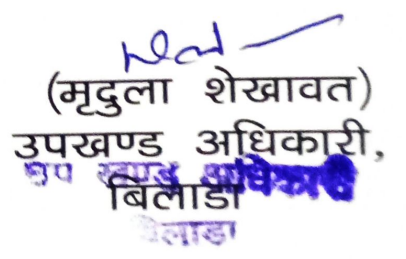 (मृदुला शेखावत)
उपखण्ड अधिकारी,
उप खण्ड अधिकारी
बिलाडा
बिलाडा